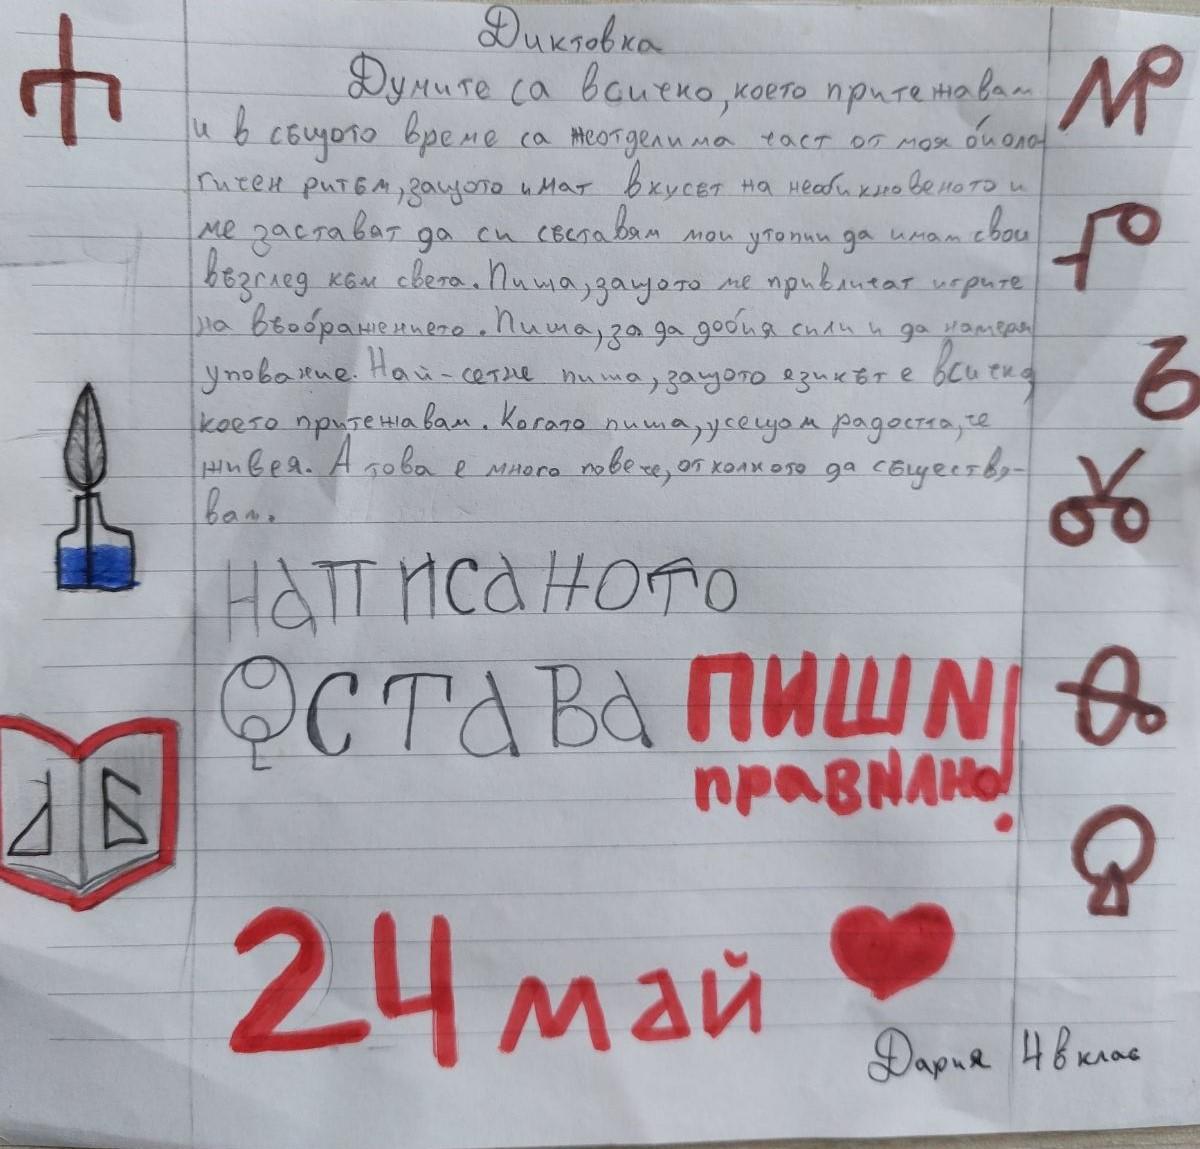 Диктовка
Думите са всичко, което притежавам
и в същото време са неотделима част от моя биоло
гичен ритъм, защото имат вкусът на необикновеното и
ме заставят да си съставям мои утопии да имам свои
възглед към света. Пиша, защото ме привличат игрите
на въображението. Пиша, за да добия сили и да намеря
упование. Най-сетне пиша, защото езикът е всичко,
което притежавам. Когато пиша, усещам радостта, че
живея. А това е много повече, отколкото да съществу-
вам.
НАПИСАНОТО
ОСТАВА ПИШИ
правилно!
АБ
24 май
Дария 4 в клас